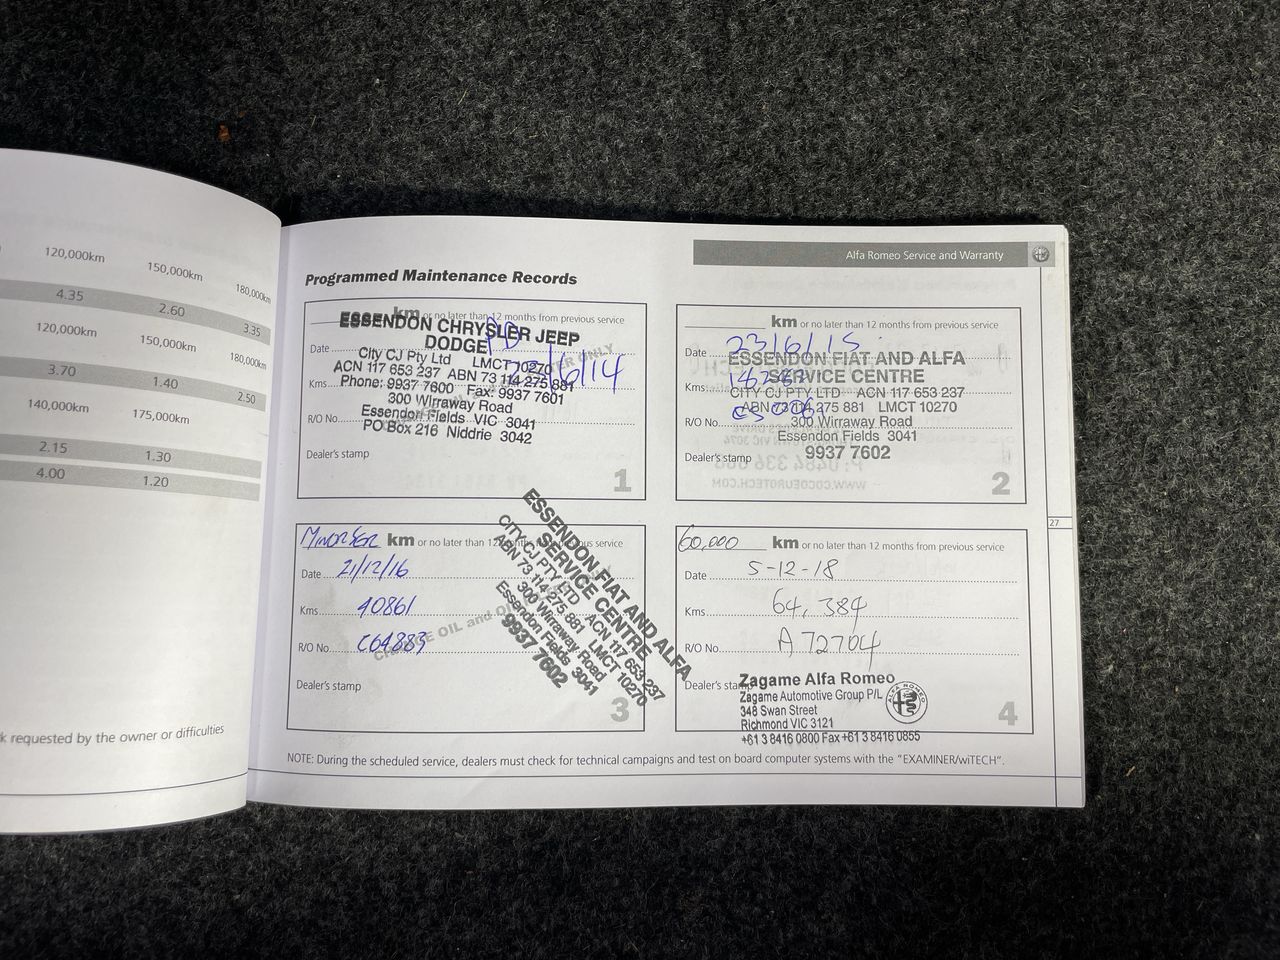 120,000km 150,000km 180,000km
4.35 2.60 3.35
120,000km 150,000km 180,000km
3.70 1.40 2.50
140,000km 175,000km
2.15 1.30
4.00 1.20
k requested by the owner or difficulties
Alfa Romeo Service and Warranty
Programmed Maintenance Records
km or no later than 12 months from previous service
ESSENDON CHRYSLER JEEP
DODGE
PD
Date
City CJ Pty Ltd LMCT 10270
/6/14
ACN 117 653 237 ABN 73 114 275 881
Kms
Phone: 9937 7600 Fax: 9937 7601
300 Wirraway Road
R/O No.
Essendon Fields VIC 3041
PO Box 216 Niddrie 3042
Dealer's stamp
1
km or no later than 12 months from previous service
Date 23/6/15
ESSENDON FIAT AND ALFA
SERVICE CENTRE
Kms
CITY CJ PTY LTD ACN 117 653 237
ABN 73 114 275 881 LMCT 10270
R/O No.
300 Wirraway Road
Essendon Fields 3041
Dealer's stamp
9937 7602
2
km or no later than 12 months from previous service
Date 21/12/16
Kms 40861
R/O No. C64883
CHANGE OIL and OIL
Dealer's stamp
ESSENDON FIAT AND ALFA
SERVICE CENTRE
CITY CJ PTY LTD ACN 117 653 237
ABN 73 114 275 881 LMCT 10270
300 Wirraway Road
Essendon Fields 3041
9937 7602
3
60,000 km or no later than 12 months from previous service
Date 5-12-18
Kms 64,384
R/O No. A72704
Dealer's stamp
Zagame Alfa Romeo
Zagame Automotive Group P/L
348 Swan Street
Richmond VIC 3121
+61 3 8416 0800 Fax +61 3 8416 0855
ALFA ROMEO
4
27
NOTE: During the scheduled service, dealers must check for technical campaigns and test on board computer systems with the "EXAMINER/wiTECH".